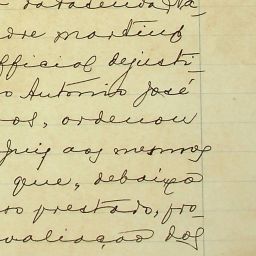 da fasenda Va-
dre martins
official dejusti-
o Antonio José
os, ordenou
Juiz aos mesmos
que, debaixo
ro prestado, pro-
valiação dos